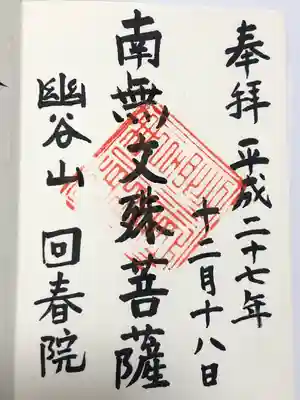 奉拝 平成二十七年
十二月十八日
南無文殊菩薩
幽谷山 回春院